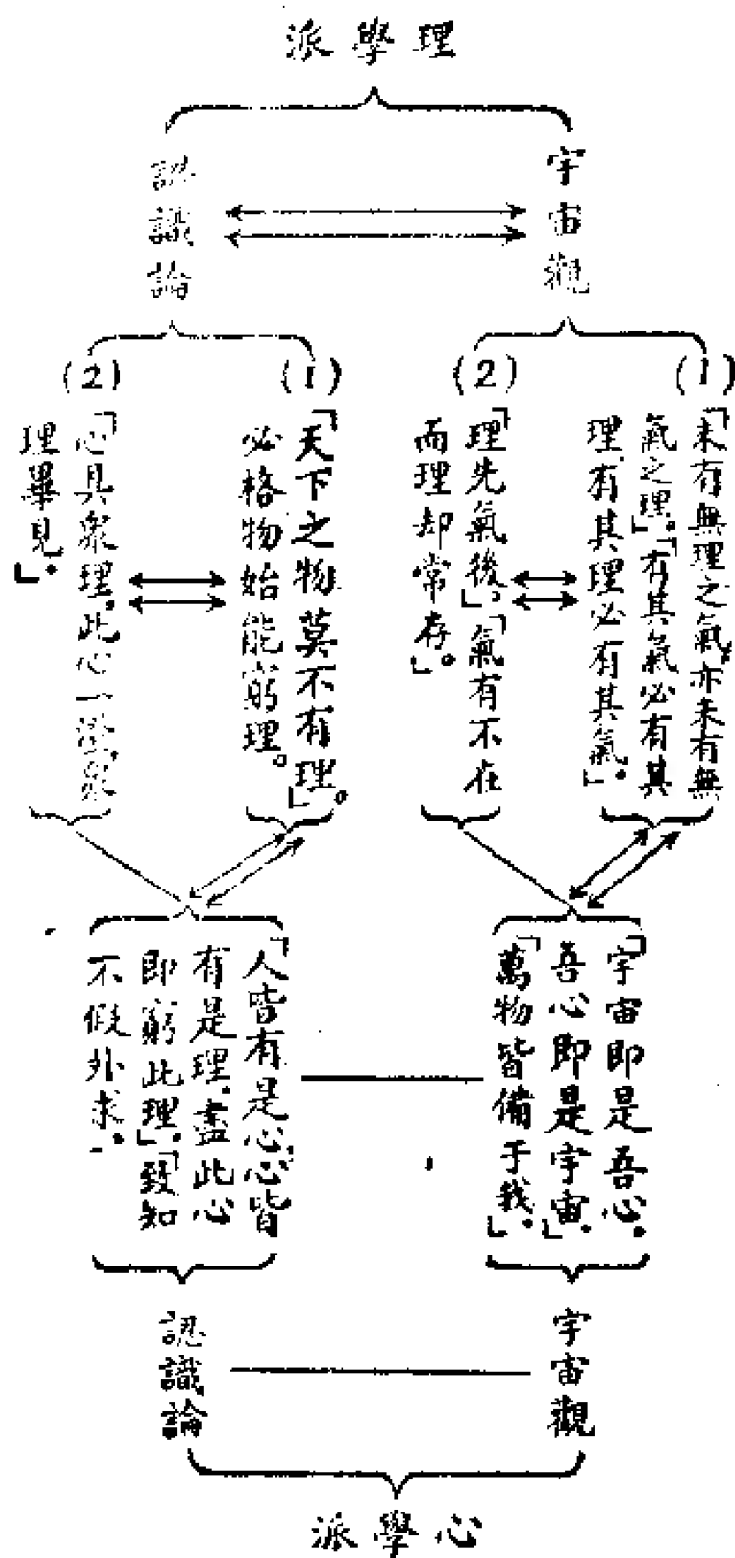 理學派
宇宙觀
認識論
(1)
「未有無理之氣，亦未有無
氣之理。」「有其氣必有其
理，有其理必有其氣」.
(2)
「理先氣後」，「氣有不在
而理却常存」。
(1)
「天下之物莫不有理」。
必格物始能窮理。
(2)
「心具衆理，此心一澄，衆
理畢見」.
「宇宙即是吾心.
吾心即是宇宙.」
「萬物皆備于我」.
「人皆有是心，心皆
有是理，盡此心
即窮此理」，「致知
不假外求.
宇宙觀
認識論
心學派